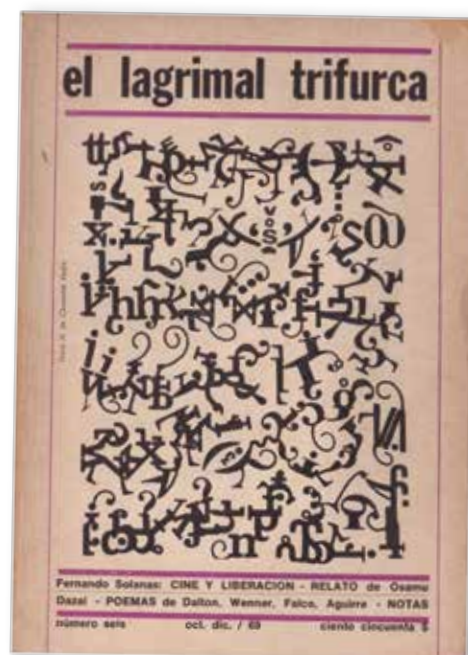 el lagrimal trifurca
Fernando Solanas: CINE Y LIBERACION - RELATO de Osamu
Dazai - POEMAS de Dalton, Wenner, Falco, Aguirre - NOTAS
número seis oct. dic. / 69 ciento cincuenta $